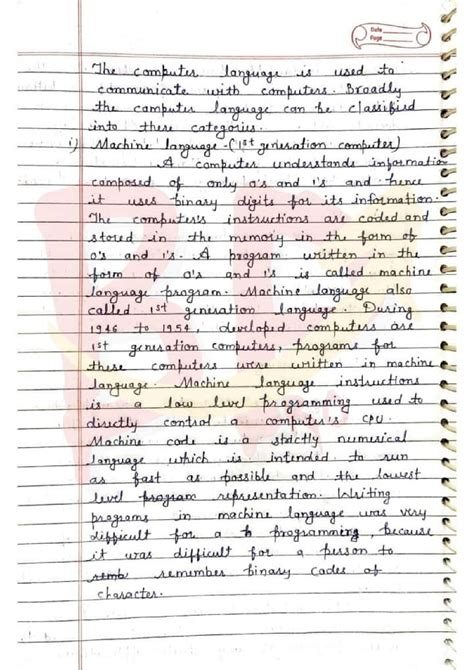 Date
Page
The computer language is used to
communicate with computers. Broadly
the computer language can be classified
into these categories.
i) Machine language - (1st generation computer)
A computer understands information
composed of only 0's and 1's and hence
it uses binary digits for its information.
The computer's instructions are coded and
stored in the memory in the form of
0's and 1's. A program written in the
form of 0's and 1's is called machine
language program. Machine language also
called 1st generation language. During
1946 to 1954, developed computers are
1st generation computers, programs for
these computers were written in machine
language. Machine language instructions
is a low level programming used to
directly control a computer's CPU.
Machine code is a strictly numerical
language which is intended to run
as fast as possible and the lowest
level program representation. Writing
programs in machine language was very
difficult for a programming, because
it was difficult for a person to
remember binary codes of
character.